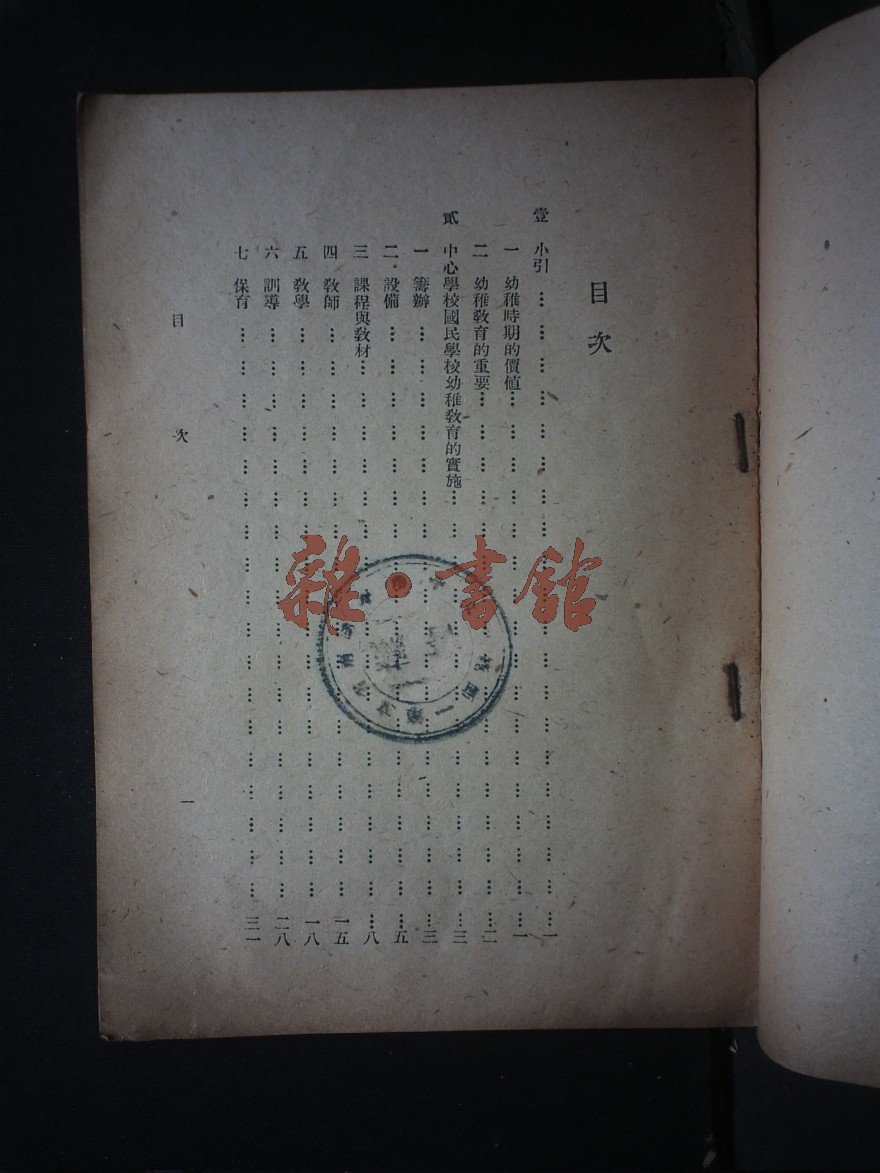 目次
壹 小引…………………………一
一 幼稚時期的價值…………………………一
二 幼稚教育的重要…………………………二
貳 中心學校國民學校幼稚教育的實施…………………………三
一 籌辦…………………………三
二 設備…………………………五
三 課程與教材…………………………八
四 教師…………………………一五
五 教學…………………………一八
六 訓導…………………………二八
七 保育…………………………三一
目次
一
雜·書館